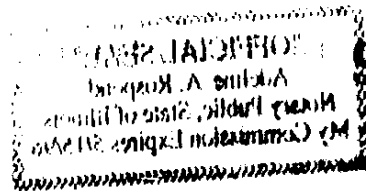 "OFFICIAL SEAL"
Adeline A.
Notary Public, State of Illinois
My Commission Expires